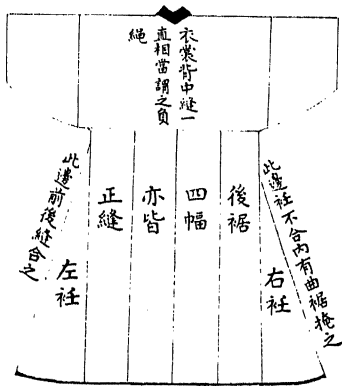 衣裳背中縫一
直相當謂之负
繩
此邊衽不合内有曲裾掩之
右衽
後裾
四幅
亦皆
正縫
左衽
此邊前後縫合之